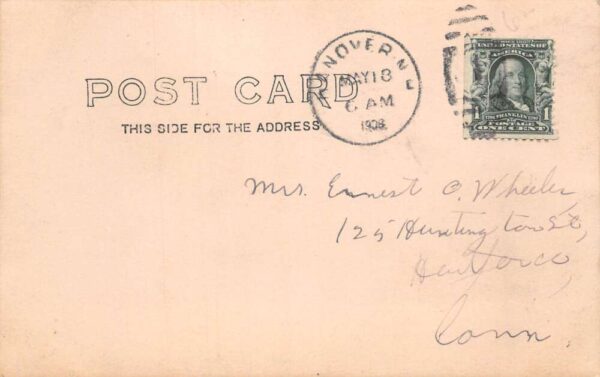 POST CARD
THIS SIDE FOR THE ADDRESS
NOVER N
MAY 18
6 AM
1908
UNITED STATES OF
AMERICA
1 FRANKLIN 1
POSTAGE
ONE CENT
Mrs. Ernest C. Wheeler,
125 Huntington St,
Hartford,
Conn.